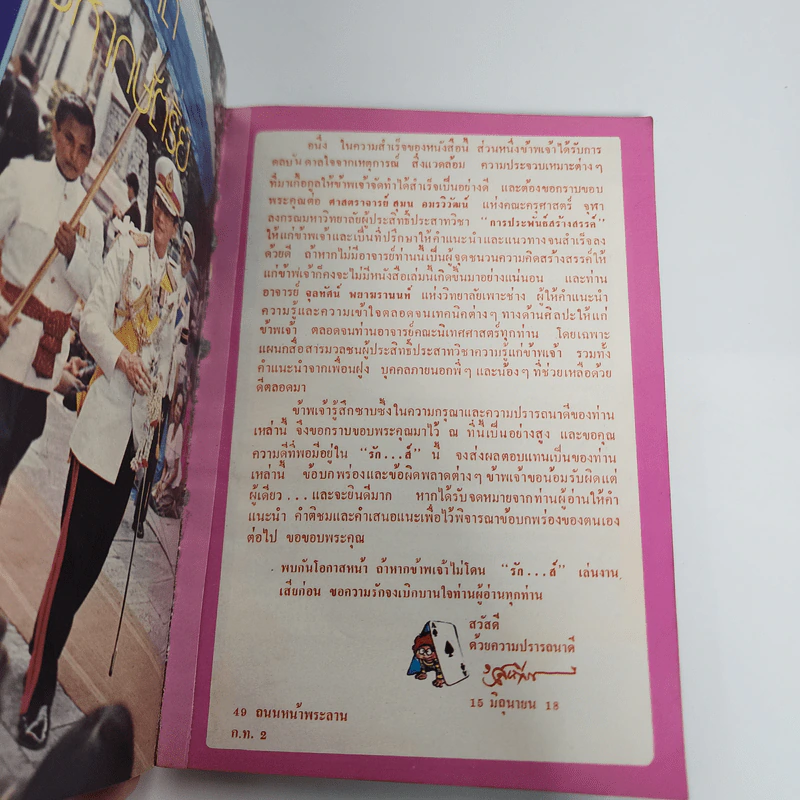 อนึ่ง ในความสำเร็จของหนังสือนี้ ส่วนหนึ่งข้าพเจ้าได้รับการ
ดลบันดาลใจจากเหตุการณ์ สิ่งแวดล้อม ความประจวบเหมาะต่างๆ
ที่มาเกื้อกูลให้ข้าพเจ้าจัดทำได้สำเร็จเป็นอย่างดี และต้องขอกราบขอบ
พระคุณต่อ ศาสตราจารย์ สุมน อมรวิวัฒน์ แห่งคณะครุศาสตร์ จุฬา
ลงกรณมหาวิทยาลัยผู้ประสิทธิ์ประสาทวิชา "การประพันธ์สร้างสรรค์"
ให้แก่ข้าพเจ้าและเป็นที่ปรึกษาให้คำแนะนำและแนวทางจนสำเร็จลง
ด้วยดี ถ้าหากไม่มีอาจารย์ท่านนี้เป็นผู้จุดชนวนความคิดสร้างสรรค์ให้
แก่ข้าพเจ้าก็คงจะไม่มีหนังสือเล่มนี้เกิดขึ้นมาอย่างแน่นอน และท่าน
อาจารย์ จุลทัศน์ พยาฆรานนท์ แห่งวิทยาลัยเพาะช่าง ผู้ให้คำแนะนำ
ความรู้และความเข้าใจตลอดจนเทคนิคต่างๆ ทางด้านศิลปะให้แก่
ข้าพเจ้า ตลอดจนท่านอาจารย์คณะนิเทศศาสตร์ทุกท่าน โดยเฉพาะ
แผนกสื่อสารมวลชนผู้ประสิทธิ์ประสาทวิชาความรู้แก่ข้าพเจ้า รวมทั้ง
คำแนะนำจากเพื่อนฝูง บุคคลภายนอกพี่ๆ และน้องๆ ที่ช่วยเหลือด้วย
ดีตลอดมา
ข้าพเจ้ารู้สึกซาบซึ้งในความกรุณาและความปรารถนาดีของท่าน
เหล่านี้ จึงขอกราบขอบพระคุณมาไว้ ณ ที่นี้เป็นอย่างสูง และขอคุณ
ความดีที่พอมีอยู่ใน "รัก...ส์" นี้ จงส่งผลตอบแทนเป็นของท่าน
เหล่านี้ ข้อบกพร่องและข้อผิดพลาดต่างๆ ข้าพเจ้าขอน้อมรับผิดแต่
ผู้เดียว...และจะยินดีมาก หากได้รับจดหมายจากท่านผู้อ่านให้คำ
แนะนำ คำติชมและคำเสนอแนะเพื่อไว้พิจารณาข้อบกพร่องของตนเอง
ต่อไป ขอขอบพระคุณ
พบกันโอกาสหน้า ถ้าหากข้าพเจ้าไม่โดน "รัก...ส์" เล่นงาน
เสียก่อน ขอความรักจงเบิกบานใจท่านผู้อ่านทุกท่าน
สวัสดี
ด้วยความปรารถนาดี
15 มิถุนายน 18
49 ถนนหน้าพระลาน
ก.ท. 2